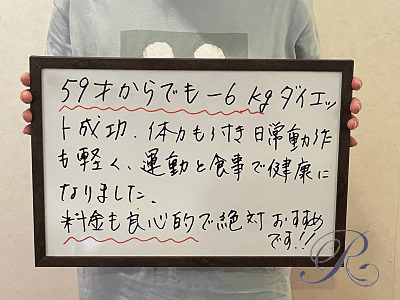 59才からでも－6kgダイエッ
ト成功、体力も付き日常動作
も軽く、運動と食事で健康に
なりました、
料金も良心的で絶対おすすめ
です!!
R